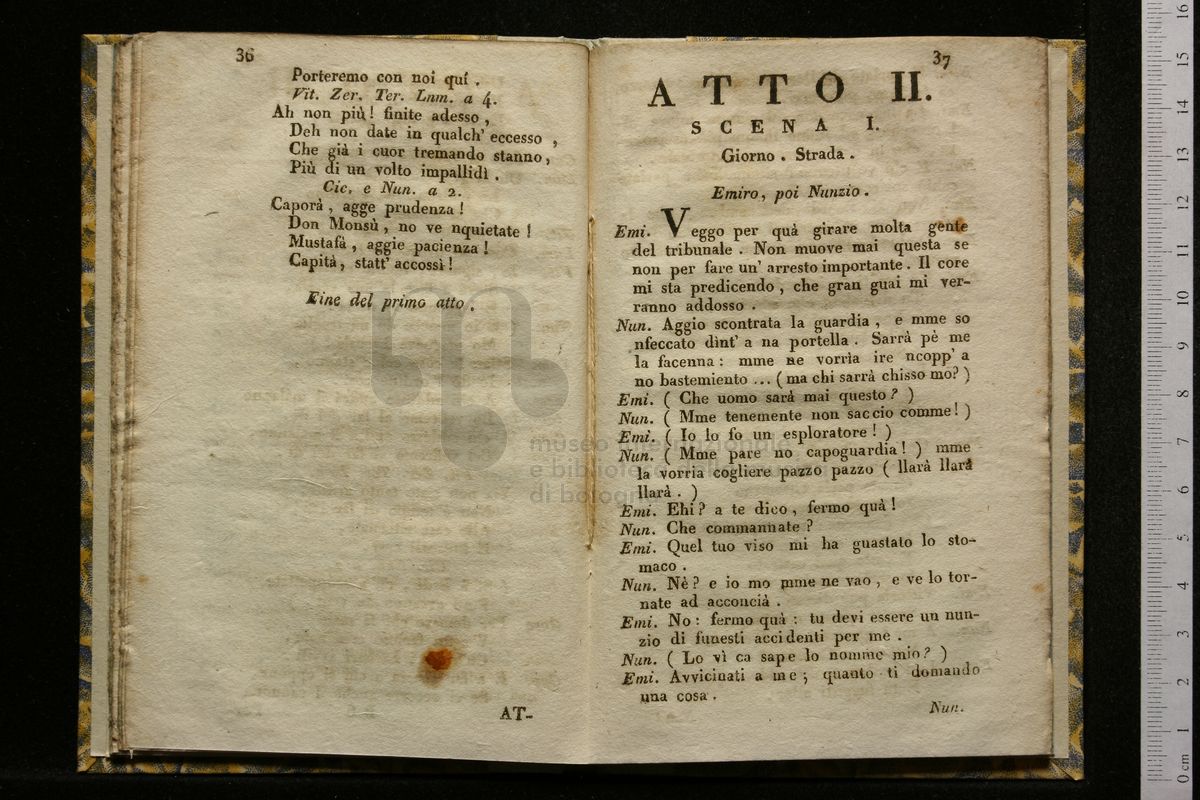 36
Porteremo con noi quí .
Vit. Zer. Ter. Lnm. a 4.
Ah non più! finite adesso ,
Deh non date in qualch' eccesso ,
Che già i cuor tremando stanno,
Più di un volto impallidì .
Cic. e Nun. a 2.
Caporà , agge prudenza !
Don Monsù , no ve nquietate !
Mustafà , aggie pacienza !
Capità, statt' accossì !
Fine del primo atto .
AT-
37
ATTO II.
SCENA I.
Giorno . Strada .
Emiro, poi Nunzio .
Emi. Veggo per quà girare molta gente
del tribunale . Non muove mai questa se
non per fare un' arresto importante . Il core
mi sta predicendo , che gran guai mi ver-
ranno addosso .
Nun. Aggio scontrata la guardia , e mme so
nfeccato dìnt' a na portella . Sarrà pè me
la facenna : mme ne vorrìa ire ncopp' a
no bastemiento ... ( ma chi sarrà chisso mo? )
Emi. ( Che uomo sarà mai questo ? )
Nun. ( Mme tenemente non saccio comme! )
Emi. ( Io lo fo un esploratore ! )
Nun. ( Mme pare no capoguardia ! ) mme
la vorrìa cogliere pazzo pazzo ( llarà llarà
llarà . )
Emi. Ehi? a te dico , fermo quà !
Nun. Che commannate ?
Emi. Quel tuo viso mi ha guastato lo sto-
maco .
Nun. Nè? e io mo mme ne vao , e ve lo tor-
nate ad acconcià .
Emi. No : fermo quà : tu devi essere un nun-
zio di funesti accidenti per me .
Nun. ( Lo vì ca sape lo nomme mio? )
Emi. Avvicinati a me ; quanto ti domando
una cosa .
Nun.
museo internazionale
e biblioteca della
di bologna
0 cm 1 2 3 4 5 6 7 8 9 10 11 12 13 14 15 16